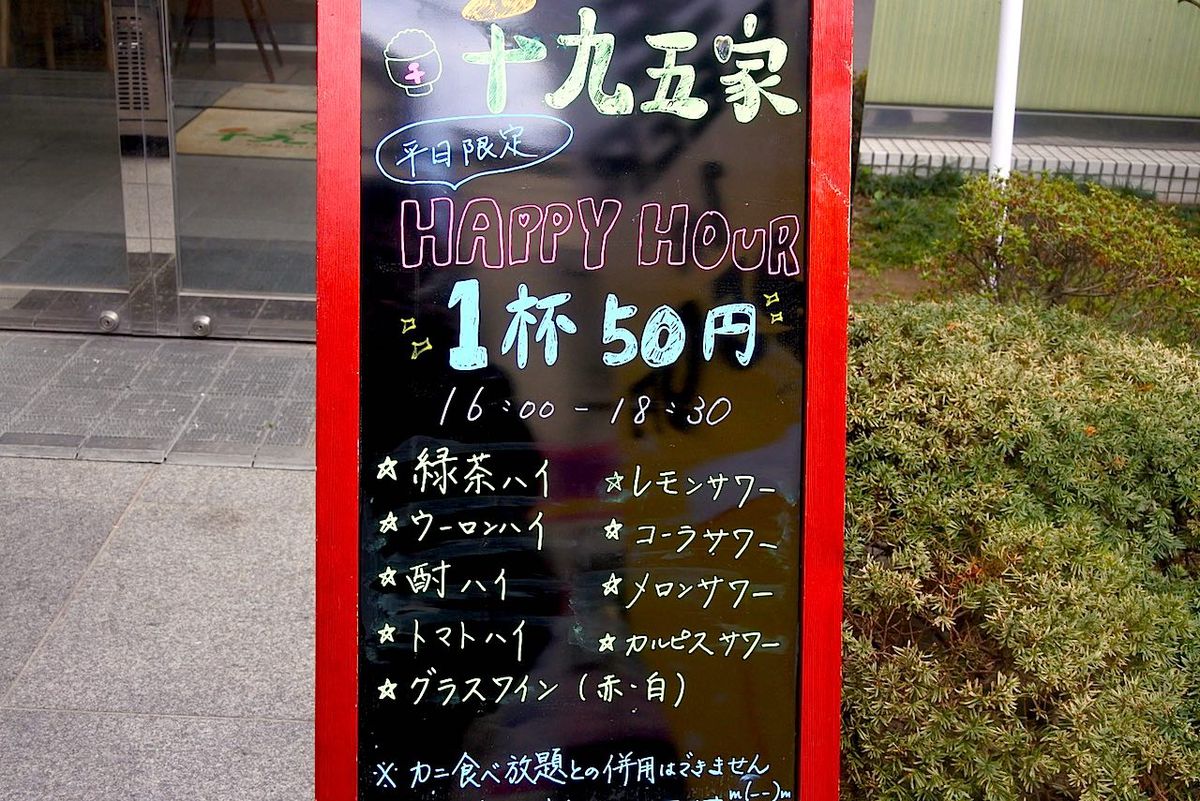 十九五家
平日限定
HAPPY HOUR
1杯 50円
16:00-18:30
☆緑茶ハイ ☆レモンサワー
☆ウーロンハイ ☆コーラサワー
☆酎ハイ ☆メロンサワー
☆トマトハイ ☆カルピスサワー
☆グラスワイン(赤・白)
※カニ食べ放題との併用はできません
m(--)m